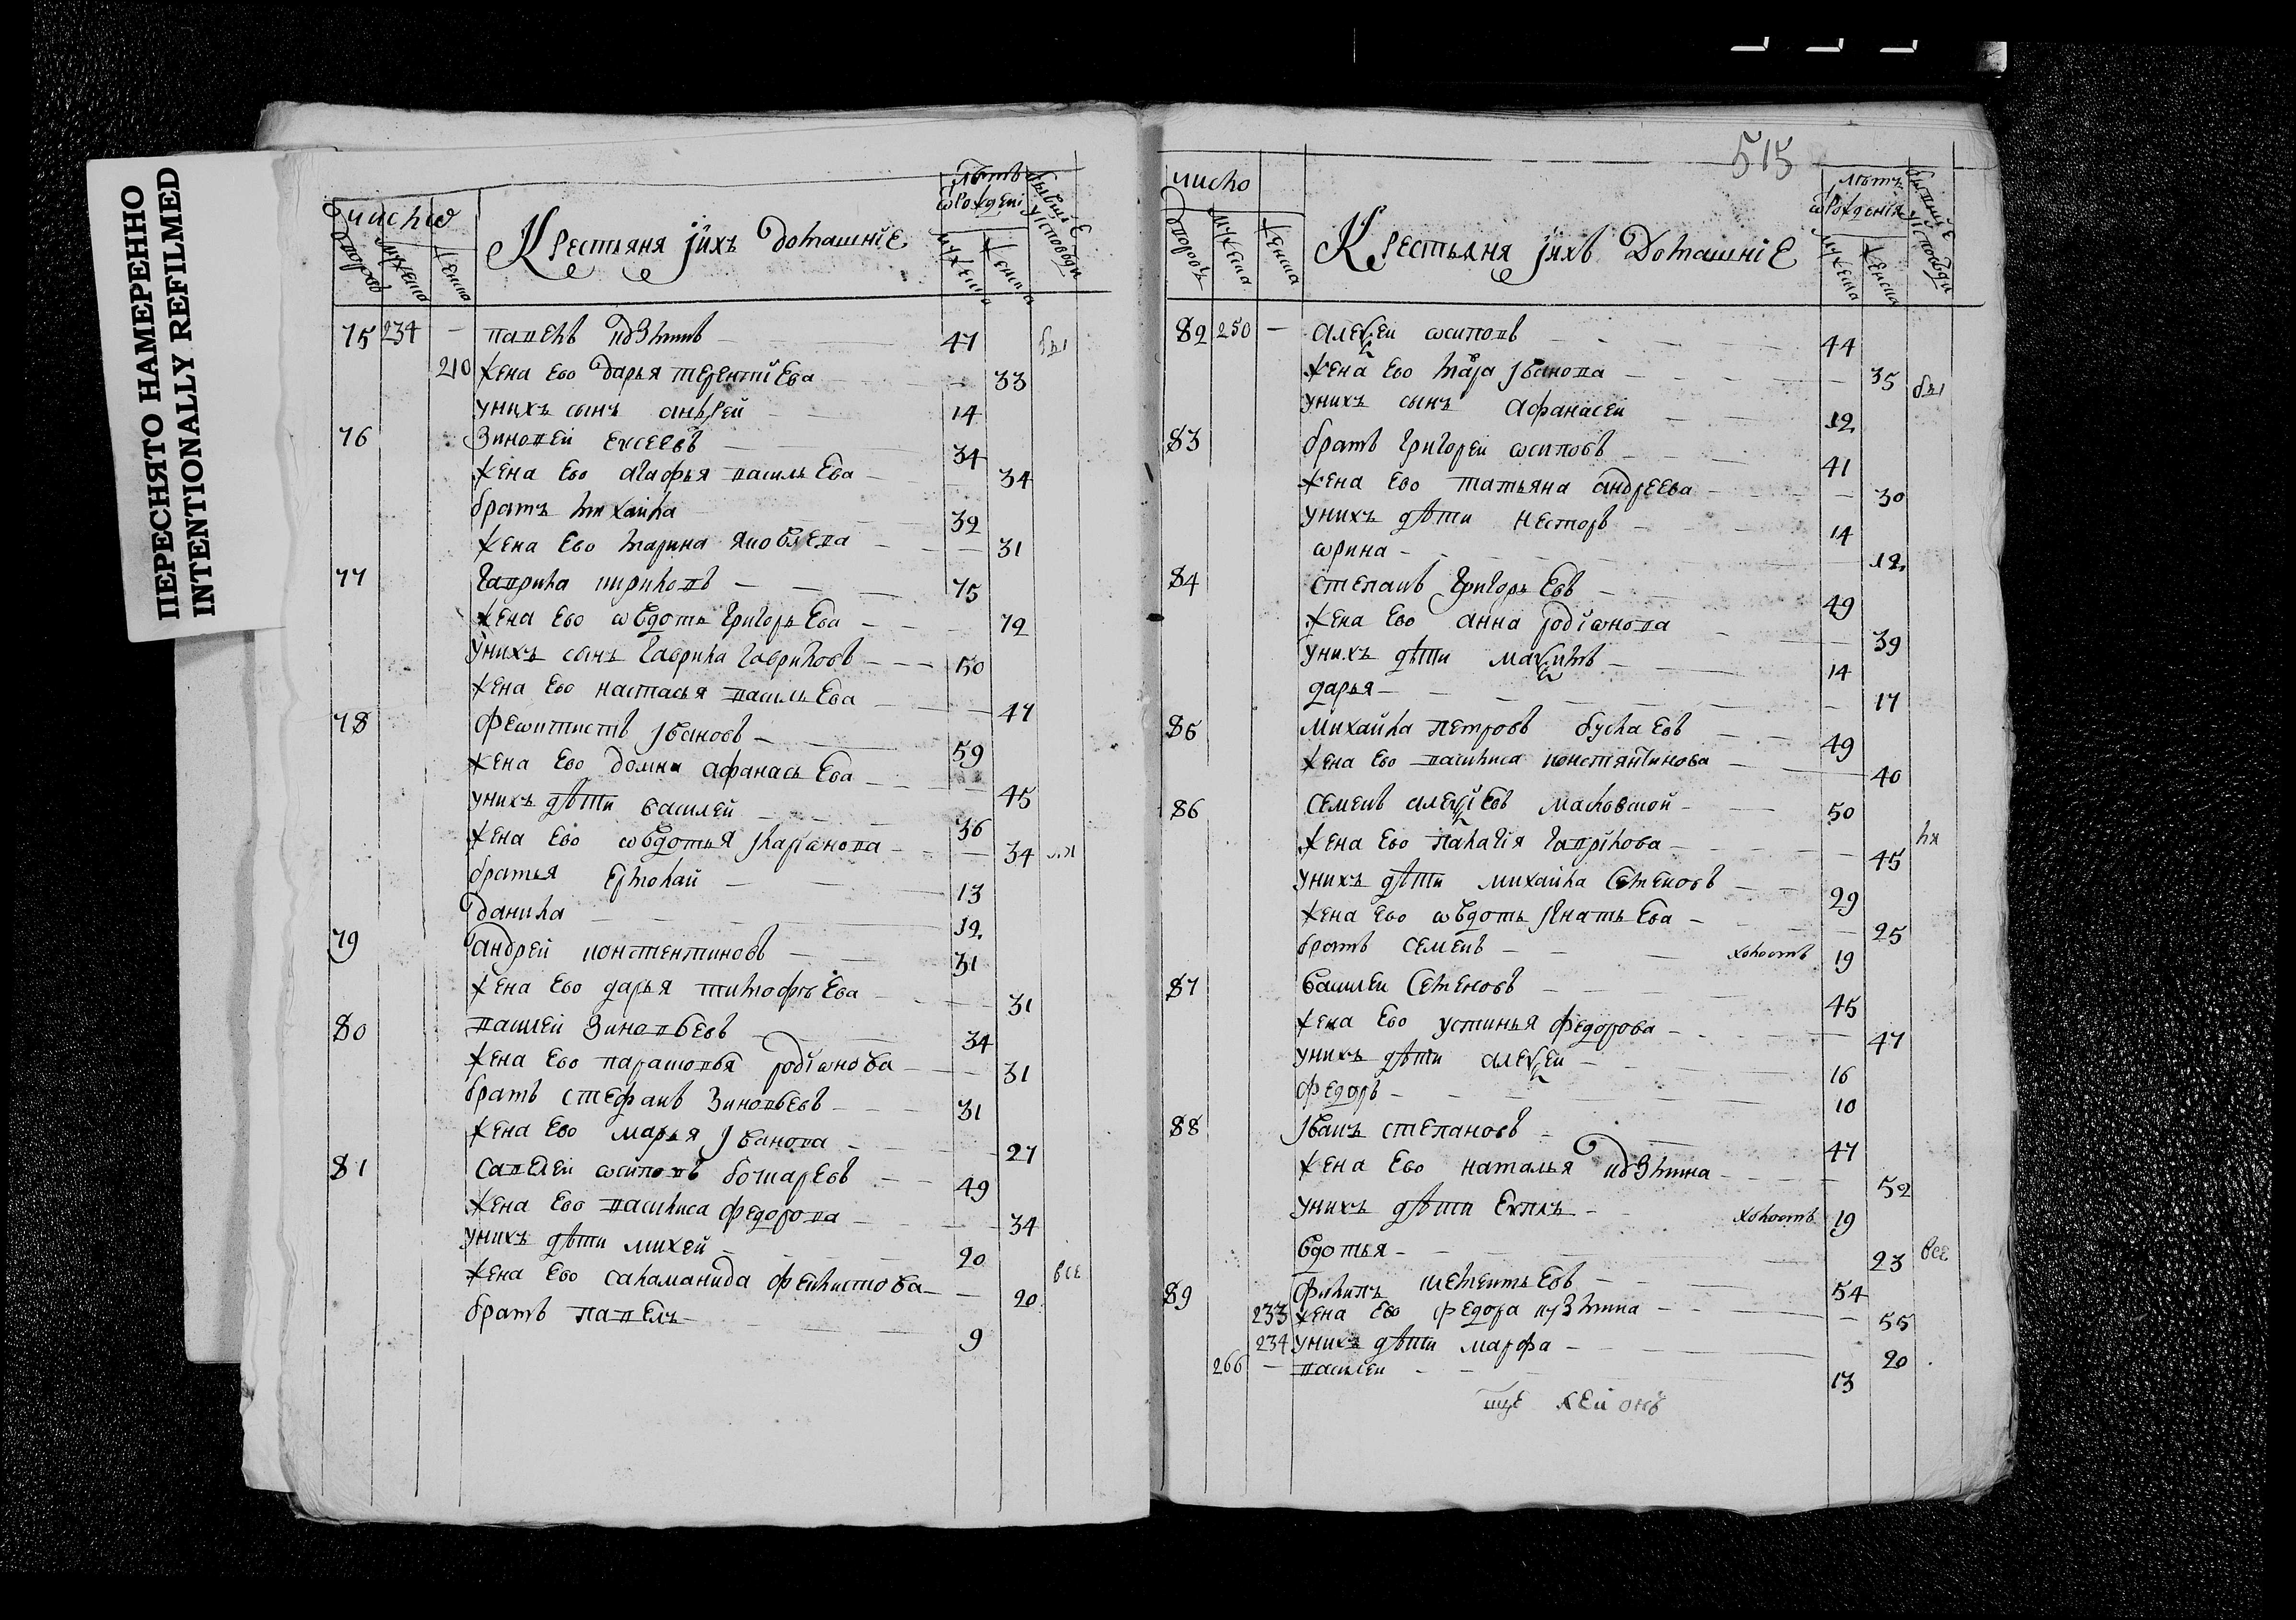 ПЕРЕСНЯТО НАМЕРЕННО
INTENTIONALLY REFILMED
число
дворовъ
мужеска
женска
Крестьяня їихъ домашнїе
лѣтъ
ѿ рожденї
мужеска
женска
бывшїе
у исповѣди
75 234 — павелъ козминъ 47 бы
210 жена ево дарья терентїева — 33
у нихъ сынъ андрей 14
76 Зиновей ексеевъ 34
жена ево агафья василъева — 34
братъ михаила 32
жена ево марина яковлева — 31
77 гаврила кириловъ 75
жена ево ѡвдотья григорьева 72
у нихъ сынъ гаврила гавриловъ 50
жена ево настасья васильева — 47
78 феѡктистъ јвановъ 59
жена ево домна афанасьева — 45
у нихъ дѣти василей 36
жена ево ѡвдотья јларїѡнова — 34 ли
братья ермолай 13
данила 12
79 андрей константиновъ 31
жена ево дарья тимофѣева — 31
80 василей Зиновьевъ 34
жена ево парасковья родїѡнова — 31
братъ стефанъ Зиновьевъ 31
жена ево марья јванова 27
81 савелей ѡсиповъ бочаревъ 49
жена ево василиса федорова — 34
у нихъ дѣти михей 20
жена ево саламанида феклистова — 20 все
братъ павелъ 9
515
число
дворовъ
мужеска
женска
Крестьяня јихъ домашнїе
лѣтъ
ѿ рожденїя
мужеска
женска
бывшїе
у исповѣди
82 250 — алеѯей ѡсиповъ 44
жена ево мара јванова — 35 бы
у нихъ сынъ афанасей 12
83 братъ григорей ѡсиповъ 41
жена ево татьяна андреева — 30
у нихъ дѣти несторъ 14
ѡрина — 12
84 степанъ григорьевъ 49
жена ево анна родїѡнова — 39
у нихъ дѣти маѯимъ 14
дарья — 17
85 михайла петровъ буслаевъ 49
жена ево василиса константинова — 40
86 семенъ алеѯїевъ масловской 50
жена ево палагїя гаврїлова — 45 ли
у нихъ дѣти михайла семеновъ 29
жена ево ѡвдотья јгнатьева — 25
братъ семенъ холостъ 19
87 василей семеновъ 45
жена ево устинья федорова — 47
у нихъ дѣти алеѯей 16
федоръ 10
88 јванъ степановъ 47
жена ево наталья козмина — 52
у нихъ дѣти екпилъ холостъ 19
вдотья — 23 все
89 филипъ клементьевъ 54
233 жена ево федора кузмина — 55
234 у нихъ дѣти марфа 20
266 — василей 13